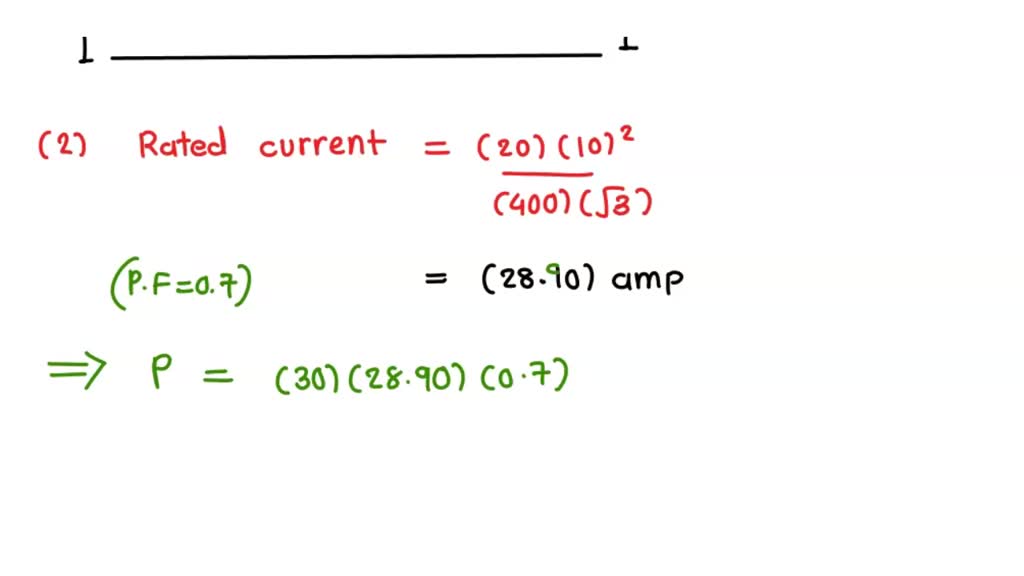 (2) Rated current = (20)(10)²
(400)(√3)
(P.F=0.7) = (28.90) amp
⇒ P = (30)(28.90)(0.7)